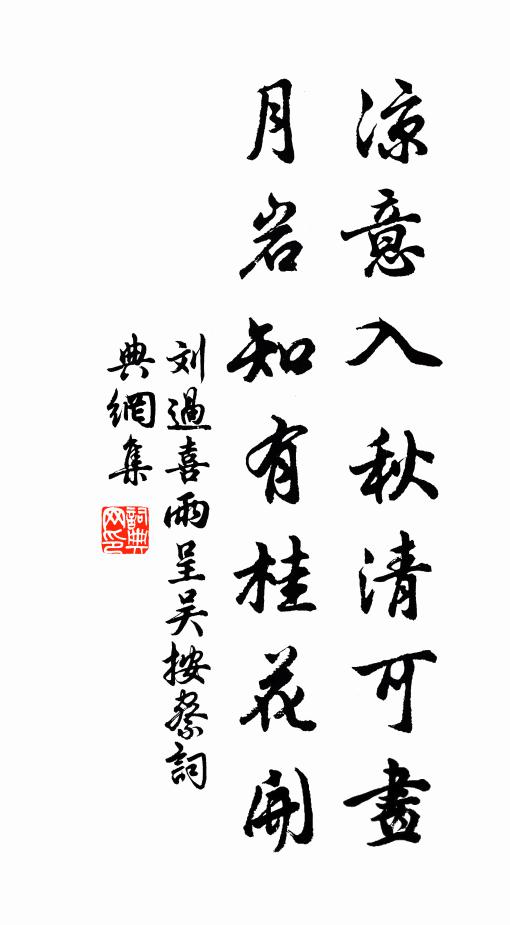 涼意入秋清可畫
月岩知有桂花開
刘過喜雨呈吴按察詞
典網集
詞典
网印